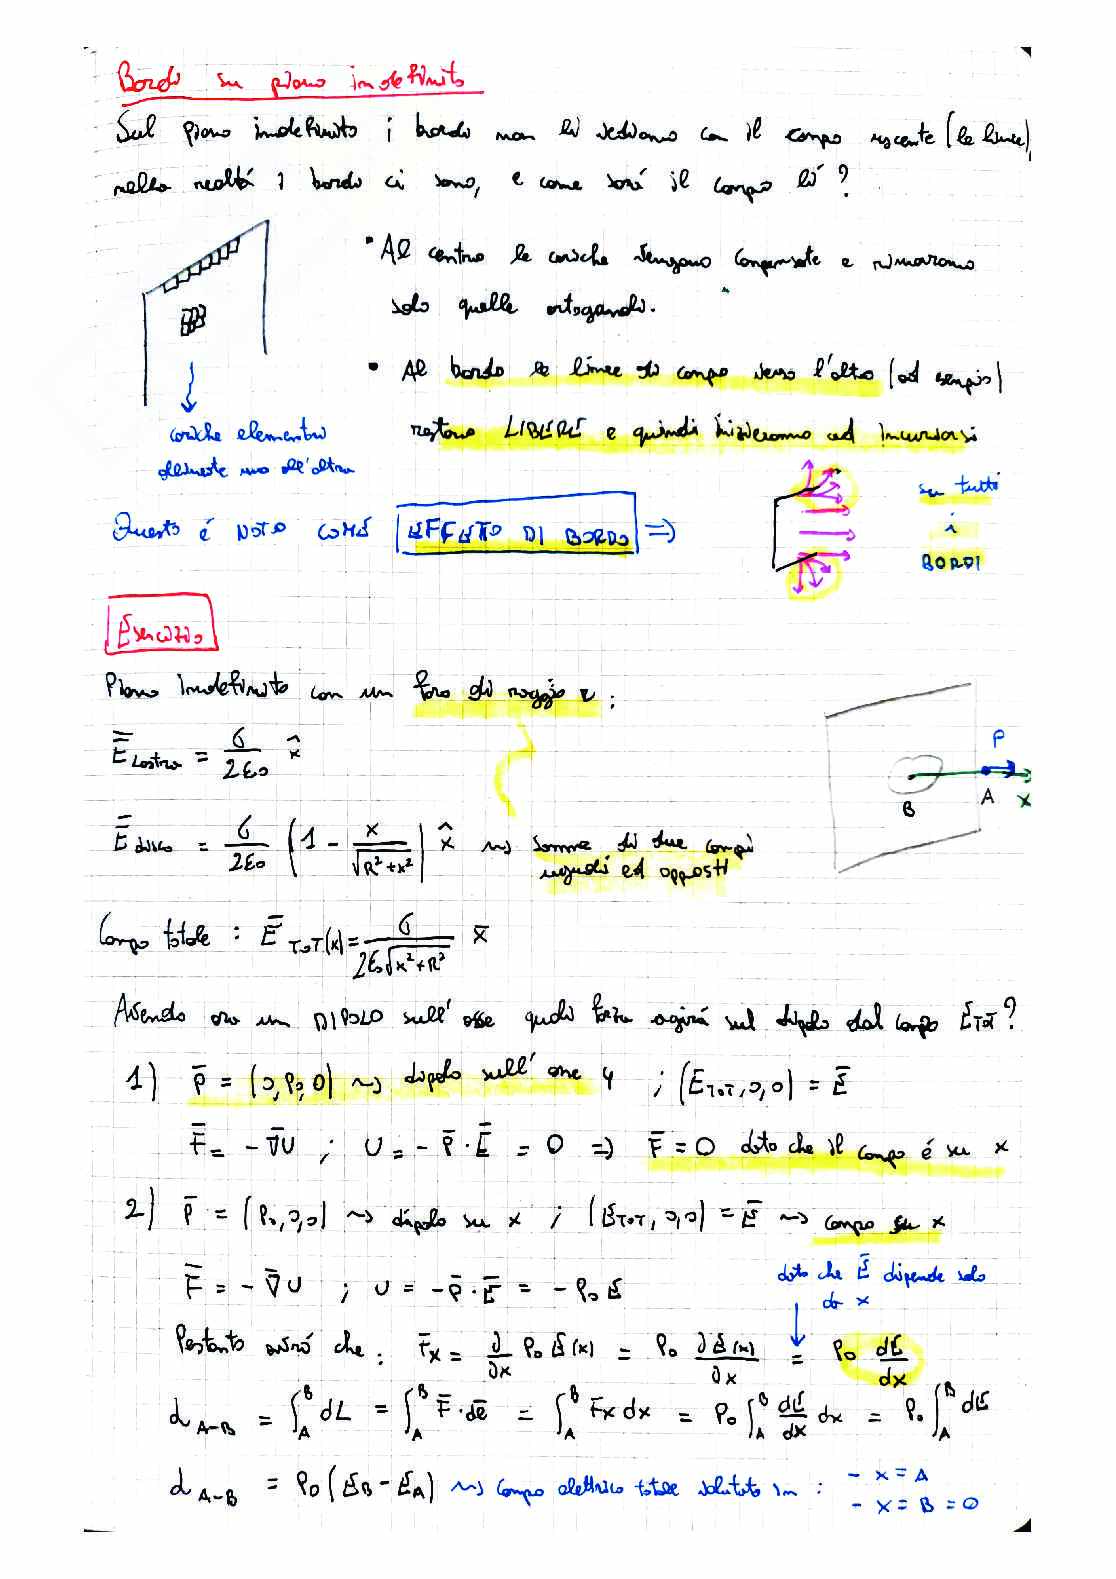 Bordi su piano indefinito
Sul piano indefinito i bordi non li vediamo con il campo uscente (le linee),
nella realtá i bordi ci sono, e come sará il campo lí?
• Al centro le cariche vengono compensate e rimarranno
solo quelle ortogonali.
• Al bordo le linee di campo verso l'alto (ad esempio)
restano LIBERE e quindi inizieranno ad incurvarsi
cariche elementari
allineate uno all'altra
su tutti
i
BORDI
Questo é NOTO COME EFFETTO DI BORDO =>
Esercizio
Piano Indefinito con un foro di raggio r :
E Lastra = σ / 2ε0 x̂
P
B A x
E disco = σ / 2ε0 (1 - x / √R²+x²) x̂ ~> somma di due campi
uguali ed opposti
Campo totale : E TOT(x) = σ / 2ε0√x²+R² x̄
Avendo ora un DIPOLO sull'asse quale forza agirá sul dipolo dal campo ETOT?
1) P̄ = (0,P0,0) ~> dipolo sull'asse y ; (ETOT,0,0) = Ē
F̄ = - ∇̄U ; U = - P̄ · Ē = 0 => F̄ = 0 dato che il campo é su x
2) P̄ = (P0,0,0) ~> dipolo su x ; (ETOT,0,0) = Ē ~> campo su x
F̄ = - ∇̄U ; U = -P̄ · Ē = - P0 E
dato che Ē dipende solo
da x
Pertanto avró che : Fx = ∂/∂x P0 E(x) = P0 ∂E(x)/∂x = P0 dE/dx
L A-B = ∫_A^B dL = ∫_A^B F̄ · dē = ∫_A^B Fx dx = P0 ∫_A^B dE/dx dx = P0 ∫_A^B dE
L A-B = P0 (EB - EA) ~> campo elettrico totale valutato in : - x = A
- x = B = 0